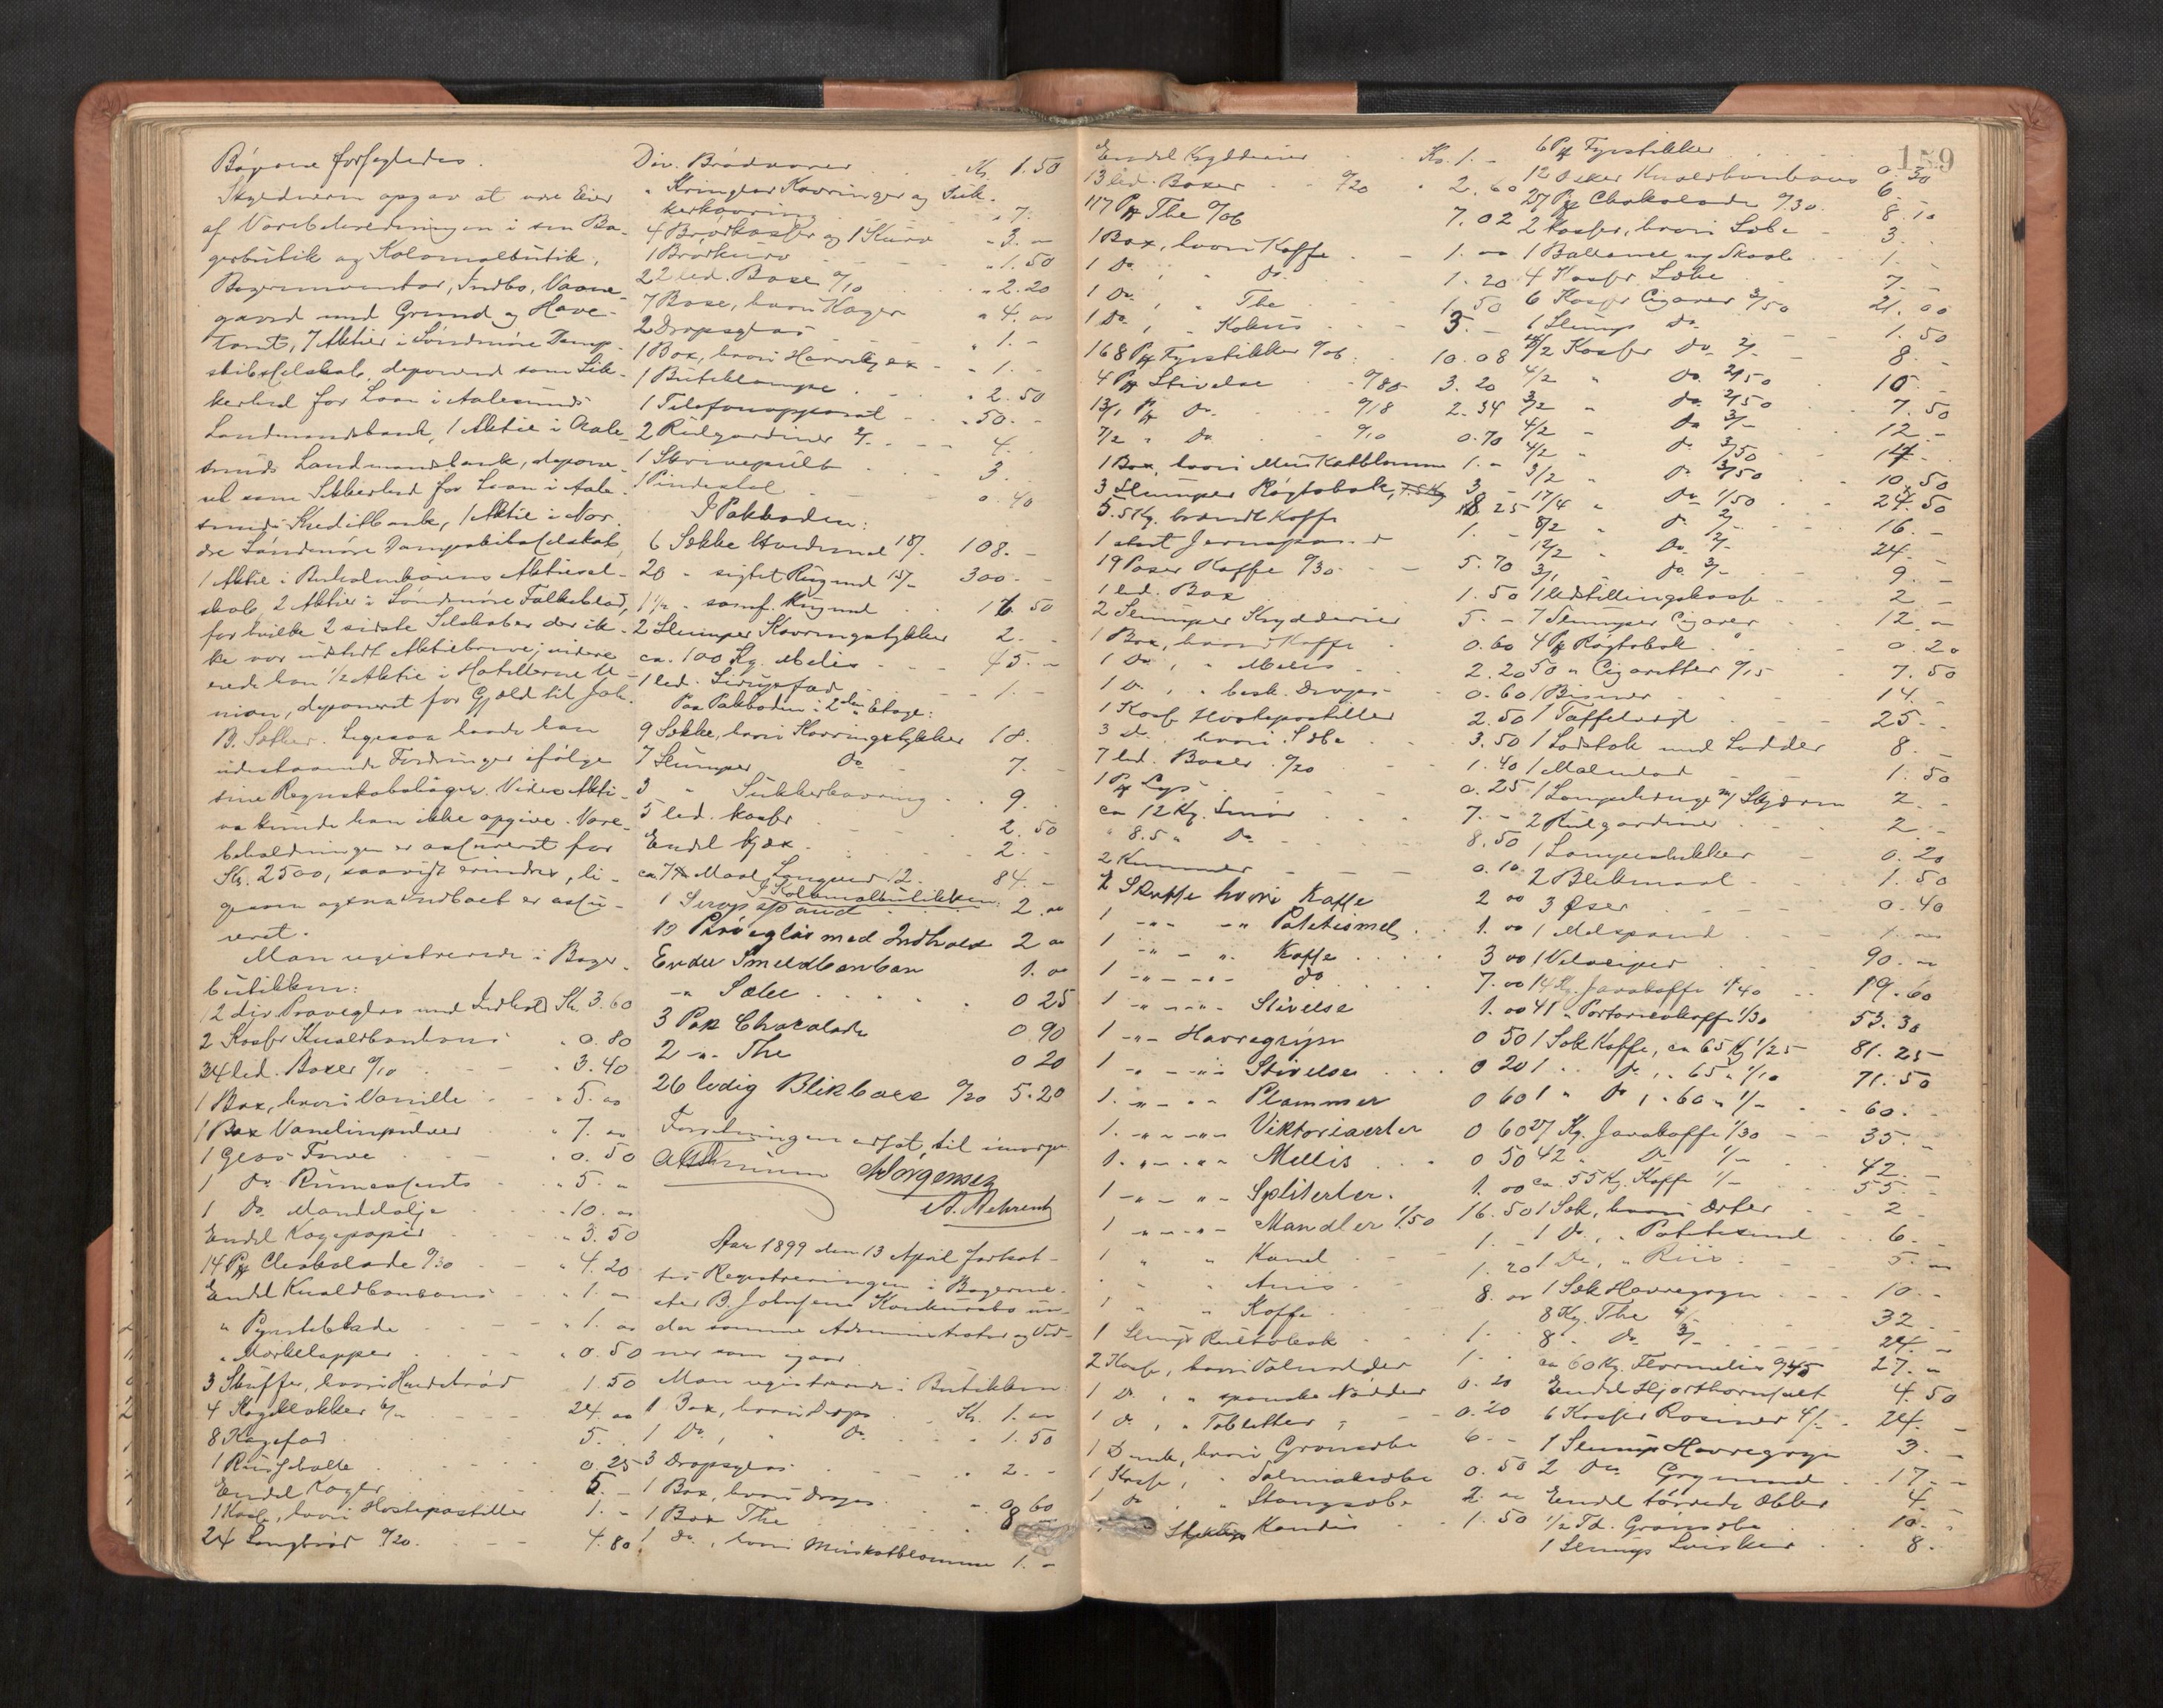 Bøgerne forsegledes.
Skyldneren opgav at være Eier
af Varebeholdningen i sin Ba-
gerbutik og Kolonialbutik,
Bagerinventar, Indbo, Vaane-
gaard med Grund og Have-
tomt, 7 Aktier i Søndmøre Damp-
skibsselskab, deponeret som Sik-
kerhed for Laan i Aalesunds
Landmandsbank, 1 Aktie i Aale-
sunds Landmandsbank, depone-
ret som Sikkerhed for Laan i Aale-
sunds Kreditbank, 1 Aktie i Nor-
dre Søndmøre Dampskibsselskab,
1 Aktie i Aktiesel-
skab, 2 Aktier i Søndmøre Folkeblad,
for hvilke 2 sidste Selskaber der ik-
ke var udstedt Aktiebreve; videre
eiede han 1/2 Aktie i Hotellerne U-
nion, deponeret for Gjæld til Joh.
B. Sæther. Ligesaa havde han
udestaaende Fordringer ifølge
sine Regnskabsbøger. Videre Akti-
va kunde han ikke opgive. Vare-
beholdningen er assureret for
Kr. 2500, saavidt erindres, li-
gesom ogsaa Indboet er assu-
reret.
Man registrerede i Bager-
butikken:
12 div Prøveglas med Indhold Kr. 3.60
2 Kasser Knaldbonbons " 0.80
34 led. Boxer 0/10 " 3.40
1 Box, hvori Vanille " 5. "
1 Box Vanelinpulver " 7. "
1 Glas Farve " 0.50
1 Do Rumessents " 5. "
1 Do Mandelolje " 10. "
Endel Kagepapir " 3.50
14 Pk Chokolade 0/30 " 4.20
Endel Knaldbonbons " 1. "
" Pynteblade " 1. "
" Mærkelapper " 0.50
3 Skuffer, hvori Hvedebrød 1.50
4 Kageklokker 6/- 24. "
8 Kagefad 5. "
1 0.25
Endel Kager 5. -
1 Kasse, hvori Hostepastiller 1. -
24 Langbrød 0/20. 4.80
Div. Brødvarer Kr. 1.50
" Kringler Kavringer og Suk-
kerkavring " 7. -
4 Brødkasser og 1 Kurv " 3. -
1 Brødkurv " 1.50
22 led. Boxe 0/10 " 2.20
7 Boxe, hvori Kager " 4. "
2 Dropsglas " 1. -
1 Box, hvori " 1. -
1 Butiklampe " 2.50
1 Telefonapparat " 50. -
2 Rulgardiner 2/- 4. -
1 Skrivepult 3. -
1 Pindestol 0.40
I Pakboden:
6 Sække Hvedemel 18/- 108. -
20 " sigtet Rugmel 15/- 300. -
1 1/2 " samf. Rugmel 16.50
2 Slumper Kavringstykker 2. -
ca. 100 Kg. Melis 45. -
1 led. Sirupsfad 1. -
Paa Pakboden i 2den Etage:
9 Sække, hvori Kavringstykker 18. -
7 Slumper Do 7. -
3 " Sukkerkavring 9. -
5 led. kasser 2.50
Endel Kjæx 2. -
ca 7 Maal 12. 84. -
I Kolonialbutikken:
1 Sirupspand 2. "
10 Prøveglas med Indhold 2 "
Endel Smeldbonbon 1. "
" Sæbe 0 25
3 Pak Chocolade 0 90
2 " The 0 20
26 ledig Blikboxe 0/20 5.20
Forretningen udsat til imorgen
Jørgensen
A. Behrentz
Aar 1899 den 13 April fortsat-
tes Registreringen i Bagerme-
ster B. Johnsens Konkursbo un-
der samme Administrator og Vid-
ner som igaar.
Man registrerede i Butikken:
1 Box, hvori Drops Kr. 1. "
1 Do, " Do 1.50
3 Dropsglas " 2. -
1 Box, hvori Drops " 0.60
1 Box The 8 -
1 Do, hvori Muskatblomme 1. -
159
Endel Krydderier Kr. 1. -
13 led. Boxer 0/20 " 2.60
117 Pk The 0/06 7.02
1 Box, hvori Kaffe 1. "
1 Do, " Do. 1.20
1 Do, " The 1.50
1 Do, " Kokus 5. -
168 Pk Fyrstikker 0/06 10.08
4 Pk Stivelse 0/80 3.20
13/1 Pk Do. 0/18 2.34
7/2 " Do 0/10 0.70
1 Box, hvori Muskatblomme 1. -
3 Slumper Røgtobak, 3. -
5.5 Kg. brændt Kaffe 8 25
1 1. -
19 Poser Kaffe 0/30 5.70
1 led. Box 1.50
2 Slumper Krydderier 5. -
1 Box, hvori Kaffe 0.60
1 Do, " Melis 2.20
1 Do, " besk. Drops 0.60
1 Kasse Hostepastiller 2.50
3 Do hvori Sæbe 3.50
7 led. Boxer 0/20 1.40
1 Pk Lys 0.25
ca 12 Kg. Smør 7. -
" 8.5 " Do 8.50
2 Kummer 0.10
2 Skuffe hvori Kaffe 2 00
1 -"- -"- Potetesmel 1.00
1 -"- -"- Kaffe 3 00
1 -"- -"- do 7.00
1 -"- -"- Stivelse 1.00
1 -"- Havregryn 0 50
1 -"- -"- Stivelse 0 20
1. -"- -"- Plommer 0 60
1. -"- -"- Viktoriaerter 0 60
1. -"- -"- Mellis 0 50
1 -"- -"- Spliterter. 1.00
1 -"- -"- Mandler 1/50 16.50
1 " " Kanel 1. -
" " Anis 1.20
1 " " Kaffe 8. "
1 Slump Rultobak 1. -
2 Kasse, hvori Valnødder 1. -
1 Do, " spanske Nødder 0.20
1 Do, " Tabletter 0.20
1 Dunk, hvori Grønsæbe 6. -
1 Kasse, " Salmiaksæbe 0.50
1 Do, " Stangsæbe 2. "
Kandis 1.50
6 Pk Fyrstikker 0.30
12 Æsker Knaldbonbons 6. -
27 Pk Chokolade 0/30. 8.10
2 Kasser, hvori Sæbe 3. -
1 Ballance og Skaale 1. -
4 Kasser Sæbe 7. -
6 Kasser Cigarer 3/50 21.00
1 Slump do 1.50
4/2 Kasser Do 2/- 8 -
4/2 " do. 2/50 10. -
3/2 " do. 2/50 7.50
4/2 " do 3/- 12. -
4/2 " do 3/50 14. -
3/2 " do 3/50 10.50
17/4 " Do 1/50 24.50
8/2 " do 2/- 16. -
12/2 " Do. 2/- 24. -
3/1 do. 3/- 9. -
1 Udstillingskasse 2 -
7 Slumper Cigarer 12. "
4 Pk Røgtobak 0.20
50 " Cigaretter 0/15 7.50
1 Bismer 14. -
1 Taffelvægt 25. -
1 Lodstok med Lodder 8. -
1 Malmlod 1.50
1 Lampekrug m/ Skjærm 2. -
2 Rulgardiner 2. -
1 Lampeslukker 0.20
2 Blikmaal 1.50
3 Øser 0.40
1 Melspand 1. "
1 Velociped 90. "
14 Kg. Javakaffe 1/40 19.60
41 " Portoricokaffe 1/30 53.30
1 Sæk Kaffe, ca 65 Kg 1/25 81.25
1 " Do, " 65 " 1/10 71.50
1 " Do, " 60 " 1/- 60. -
27 Kg. Javakaffe 1/30 35. -
42 " Do 1/- 42. -
ca. 55 Kg. Kaffe 1/- 55. -
1 Sæk, hvori Erter 2 -
1 Do, " Potetesmel 6. -
1 Do, " Riis 5. "
1 Sæk Havregryn 10. -
8 Kg. The 4/- 32. -
8 " Do 3/- 24. -
ca 60 Kg. Flormelis 0/45 27. "
Endel Hjorthornsalt 4.50
6 Kasser Rosiner 4/- 24. -
1 Slump Havregryn 3. -
2 Do Grynmel 17. -
Endel tørrede Æbler 4. -
1/2 Td. Grønsæbe 10. -
1 Slump Svisker 8. -